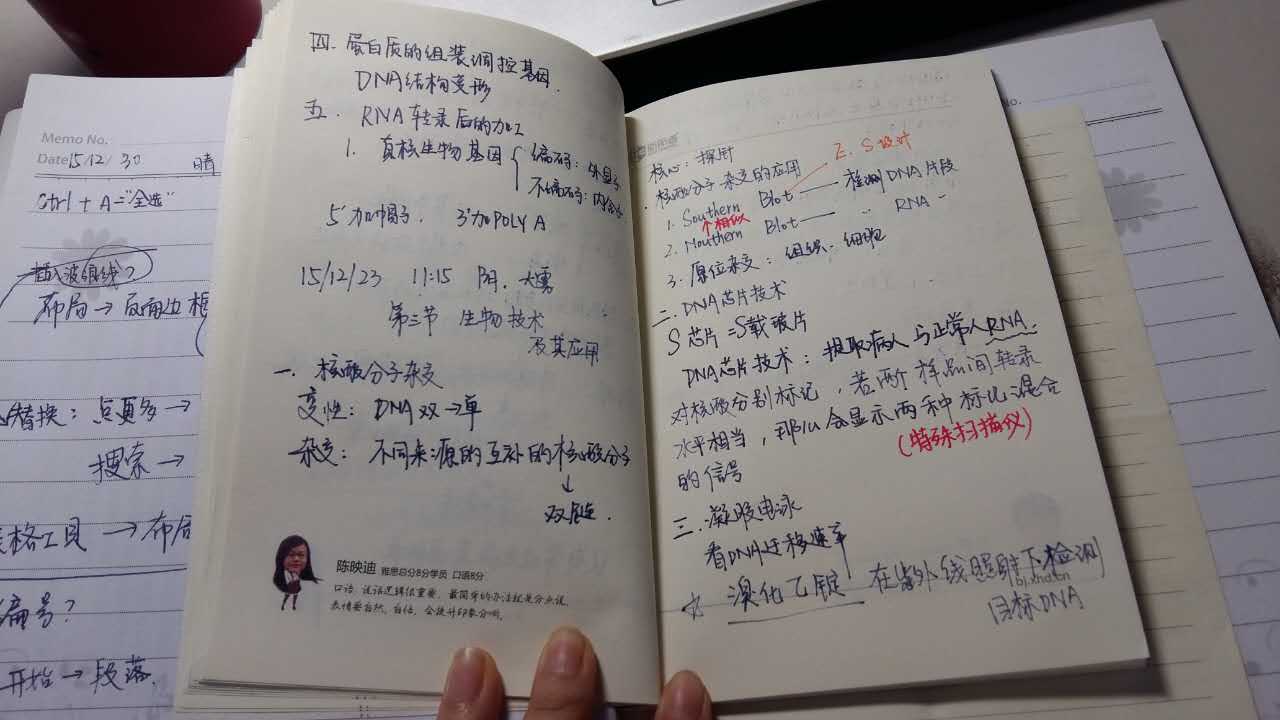 Memo No.
Date 15/12/30 晴
Ctrl + A = "全选"
插入波浪线?
布局→页面边框
替换: 点更多→
搜索→
表格工具→布局
编号?
开始→段落
四. 蛋白质的组装调控基因.
DNA结构变形
五. RNA转录后的加工
1. 真核生物基因 { 编码: 外显子
不编码: 内含子
5'加帽子. 3'加POLY A
15/12/23 11:15 阴. 大雾
第三节 生物技术
及其应用
一. 核酸分子杂交
变性: DNA双→单
杂交: 不同来源的互补的核酸分子
↓
双链.
陈映迪 雅思总分8分学员 口语8分
口语, 说话逻辑很重要, 最简单的办法就是分点说,
表情要自然, 自信, 会提升印象分哟。
No.
核心: 探针
Z. S 设计
核酸分子杂交的应用
1. Southern Blot —— 检测DNA片段
↑相似
2. Nouthern Blot —— 〃 RNA 〃
3. 原位杂交: 组织. 细胞
二. DNA芯片技术
S芯片=S载玻片
DNA芯片技术: 提取病人与正常人RNA.
对核酸分别标记, 若两样品间转录
水平相当, 那么会显示两种标记混合
的信号
(特殊扫描仪)
三. 凝胶电泳
看DNA迁移速率
☆ 溴化乙锭 在紫外线照射下检测
目标DNA